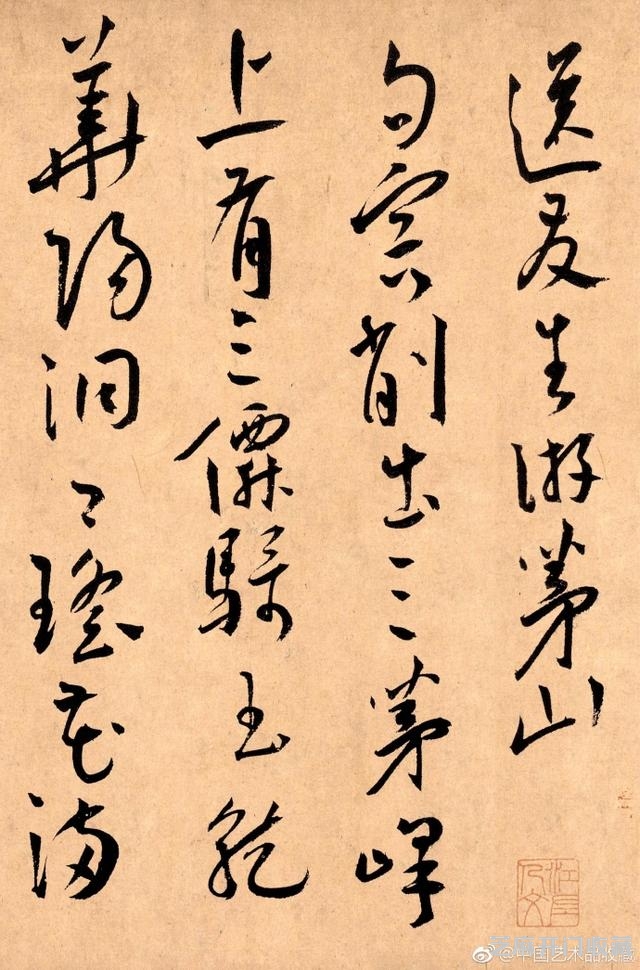 送友生游茅山
句容削出三茅峰
上有三僊騎玉龍
華陽洞口瑤花滿
@中国艺术品收藏